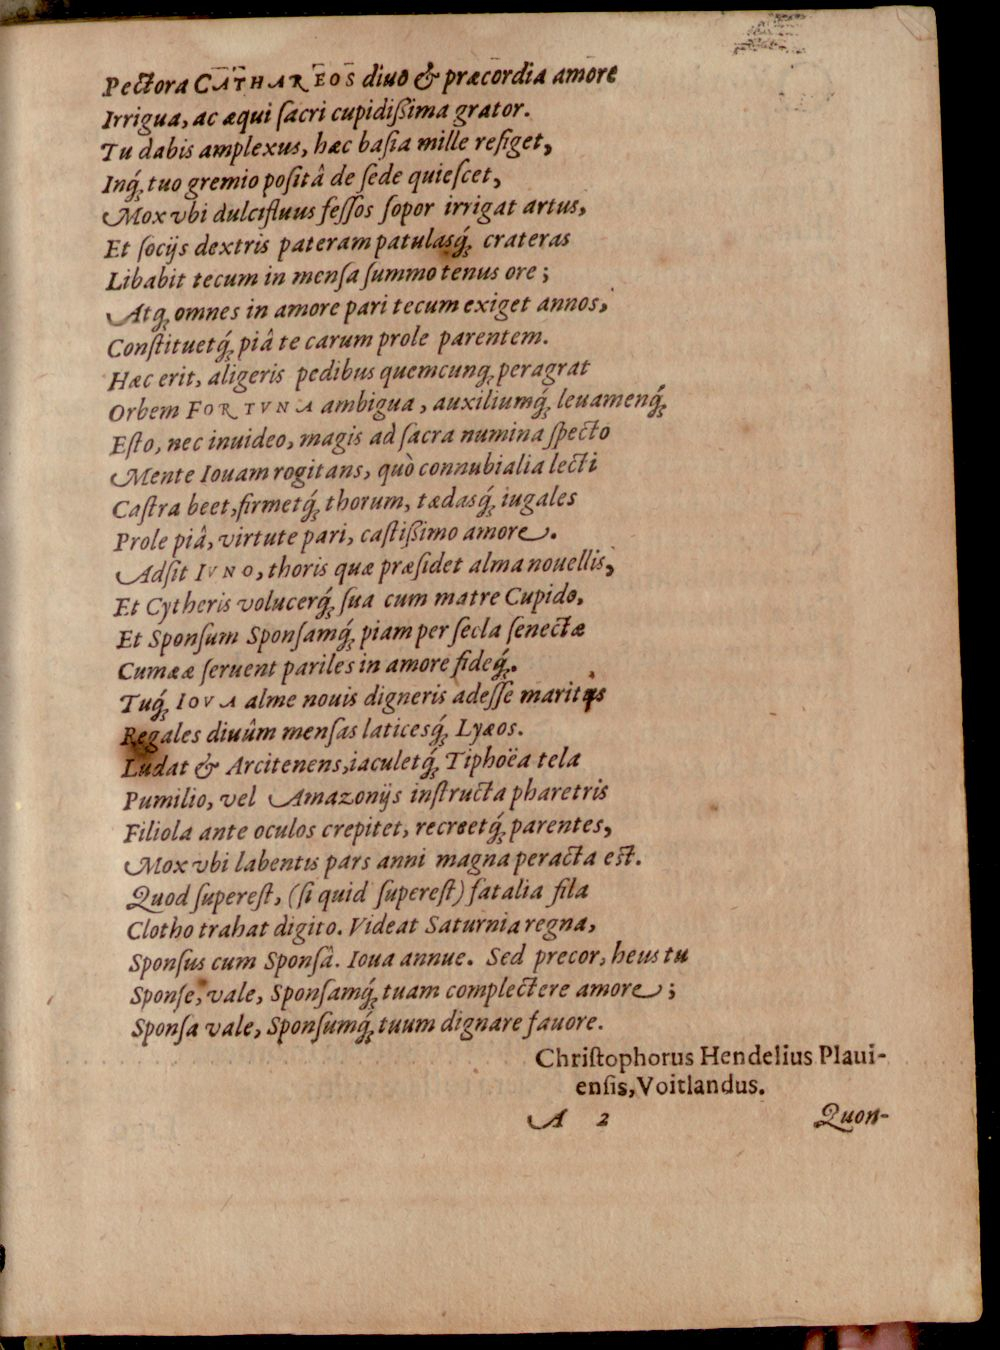 Pectora CATHAREOS diuo & præcordia amore
Irrigua, ac æqui ſacri cupidißima grator.
Tu dabis amplexus, hæc baſia mille refiget,
Inq́ꝫ tuo gremio poſitâ de ſede quieſcet,
Mox vbi dulcifluus feſſos ſopor irrigat artus,
Et ſocijs dextris pateram patulasq́ꝫ crateras
Libabit tecum in menſa ſummo tenus ore;
Atqꝫ omnes in amore pari tecum exiget annos,
Conſtituetq́ꝫ piâ te carum prole parentem.
Hæc erit, aligeris pedibus quemcunqꝫ peragrat
Orbem FORTVNA ambigua, auxiliumq́ꝫ leuamenq́ꝫ
Eſto, nec inuideo, magis ad ſacra numina ſpecto
Mente Iouam rogitans, quò connubialia lecti
Caſtra beet, firmetq́ꝫ thorum, tædasq́ꝫ iugales
Prole piâ, virtute pari, caſtißimo amore.
Adſit IVNO, thoris quæ præſidet alma nouellis,
Et Cytheris volucerq́ꝫ ſua cum matre Cupido,
Et Sponſum Sponſamq́ꝫ piam per ſecla ſenectæ
Cumææ ſeruent pariles in amore fideq́ꝫ.
Tuq́ꝫ IOVA alme nouis digneris adeſſe maritis
Regales diuûm menſas laticesq́ꝫ Lyæos.
Ludat & Arcitenens, iaculetq́ꝫ Tiphoëa tela
Pumilio, vel Amazonijs inſtructa pharetris
Filiola ante oculos crepitet, recreetq́ꝫ parentes,
Mox vbi labentis pars anni magna peracta eſt.
Quod ſupereſt, (ſi quid ſupereſt) fatalia fila
Clotho trahat digito. Videat Saturnia regna,
Sponſus cum Sponſâ. Ioua annue. Sed precor, heus tu
Sponſe, vale, Sponſamq́ꝫ tuam complectere amore;
Sponſa vale, Sponſumq́ꝫ tuum dignare fauore.
Chriſtophorus Hendelius Plaui-
enſis, Voitlandus.
A 2 Quon-